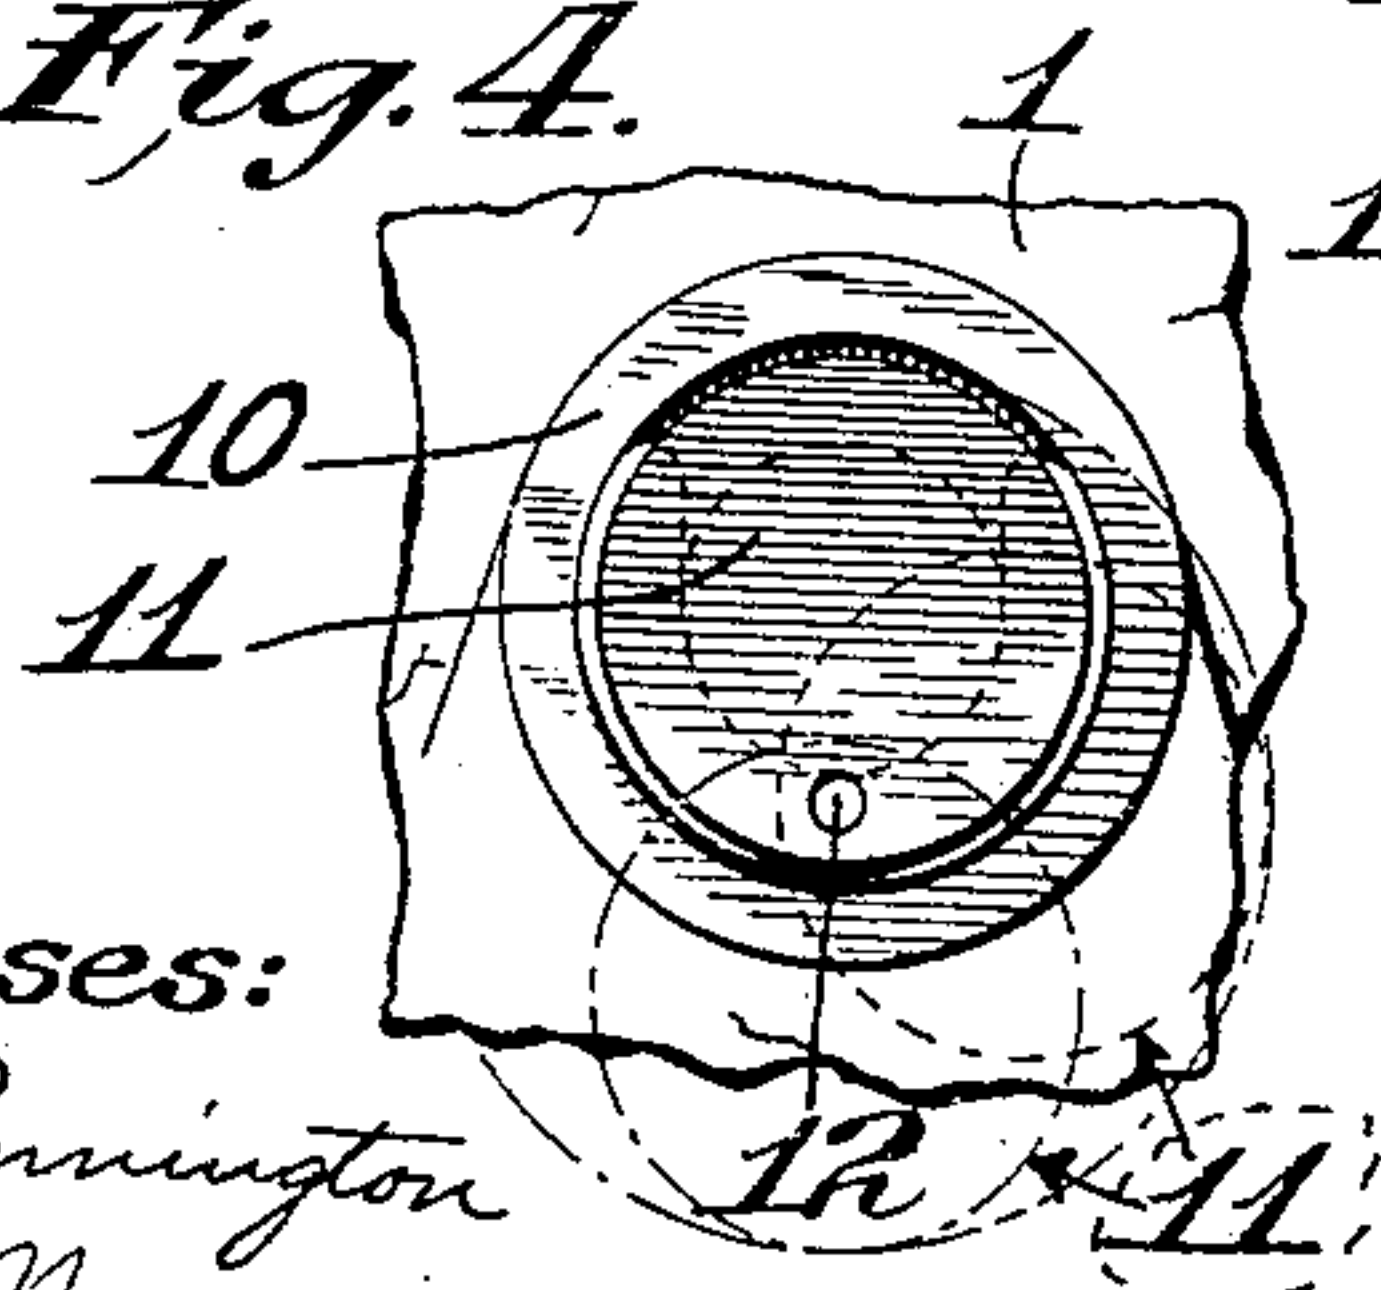 Fig. 4.
1
1
10
11
ses:
nnington
12
11